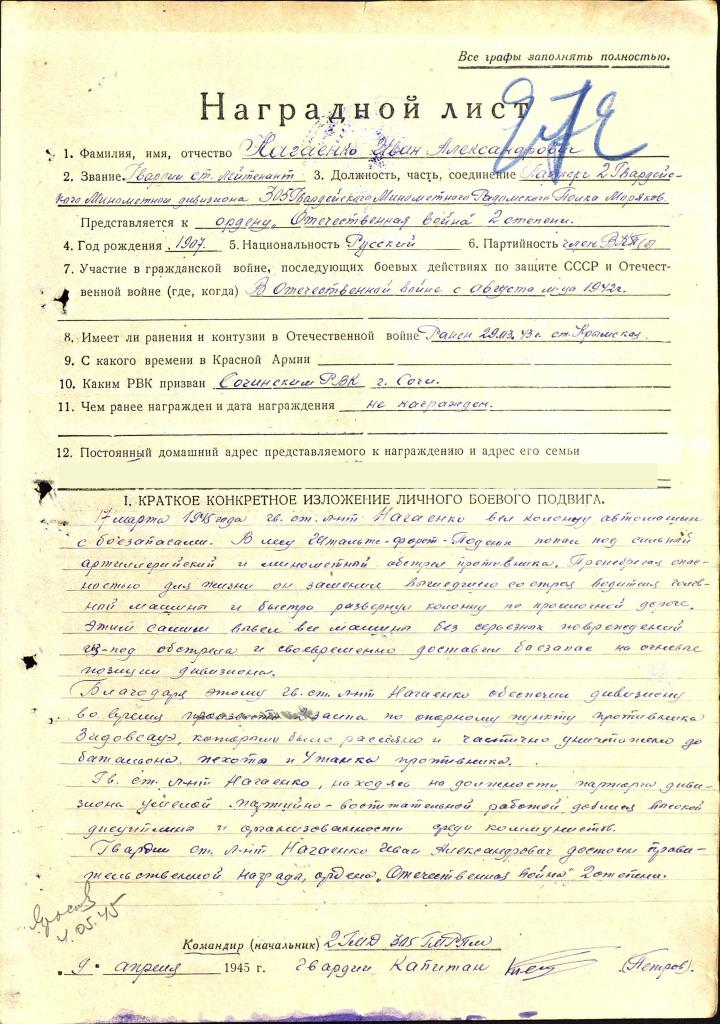 Все графы заполнять полностью.
Наградной лист
1. Фамилия, имя, отчество Нагаенко Иван Александрович
2. Звание Гвардии ст. лейтенант 3. Должность, часть, соединение 2 Гвардейс-
кого Минометного дивизиона 305 Гвардейского Минометного Радомского Полка Моряков
Представляется к ордену „Отечественная война" 2 степени.
4. Год рождения 1907. 5. Национальность Русский 6. Партийность член ВКП(б)
7. Участие в гражданской войне, последующих боевых действиях по защите СССР и Отечест-
венной войне (где, когда) В Отечественной войне с августа м-ца 1942г.
8. Имеет ли ранения и контузии в Отечественной войне Ранен 29.03.43г. ст. Крымская.
9. С какого времени в Красной Армии
10. Каким РВК призван Сочинским РВК г. Сочи.
11. Чем ранее награжден и дата награждения не награжден.
12. Постоянный домашний адрес представляемого к награждению и адрес его семьи
I. КРАТКОЕ КОНКРЕТНОЕ ИЗЛОЖЕНИЕ ЛИЧНОГО БОЕВОГО ПОДВИГА.
17 марта 1945 года гв. ст. л-нт Нагаенко вел колонну автомашин
с боезапасами. В лесу попал под сильный
артиллерийский и минометный обстрел противника. Пренебрегая опас-
ностью для жизни он заменил вышедшего со строя водителя голов-
ной машины и быстро развернул колонну по просёлочной дороге.
Этим самым вывел все машины без серьезных повреждений
из-под обстрела и своевременно доставил боезапас на огневые
позиции дивизиона.
Благодаря этому гв. ст. л-нт Нагаенко обеспечил дивизиону
во время залпа по опорному пункту противника
Зидовсауэ, которым было рассеяно и частично уничтожено до
батальона пехоты и 4 танка противника.
Гв. ст. л-нт Нагаенко, находясь на должности парторга диви-
зиона умелой партийно-воспитательной работой добился высокой
дисциплины и организованности среди коммунистов.
Гвардии ст. л-нт Нагаенко Иван Александрович достоин прави-
тельственной награды, ордена „Отечественная война" 2 степени.
4.05.45
Командир (начальник) 2 ГМД 305 ГМРПМ
„9" апреля 1945 г. Гвардии Капитан (Петров).